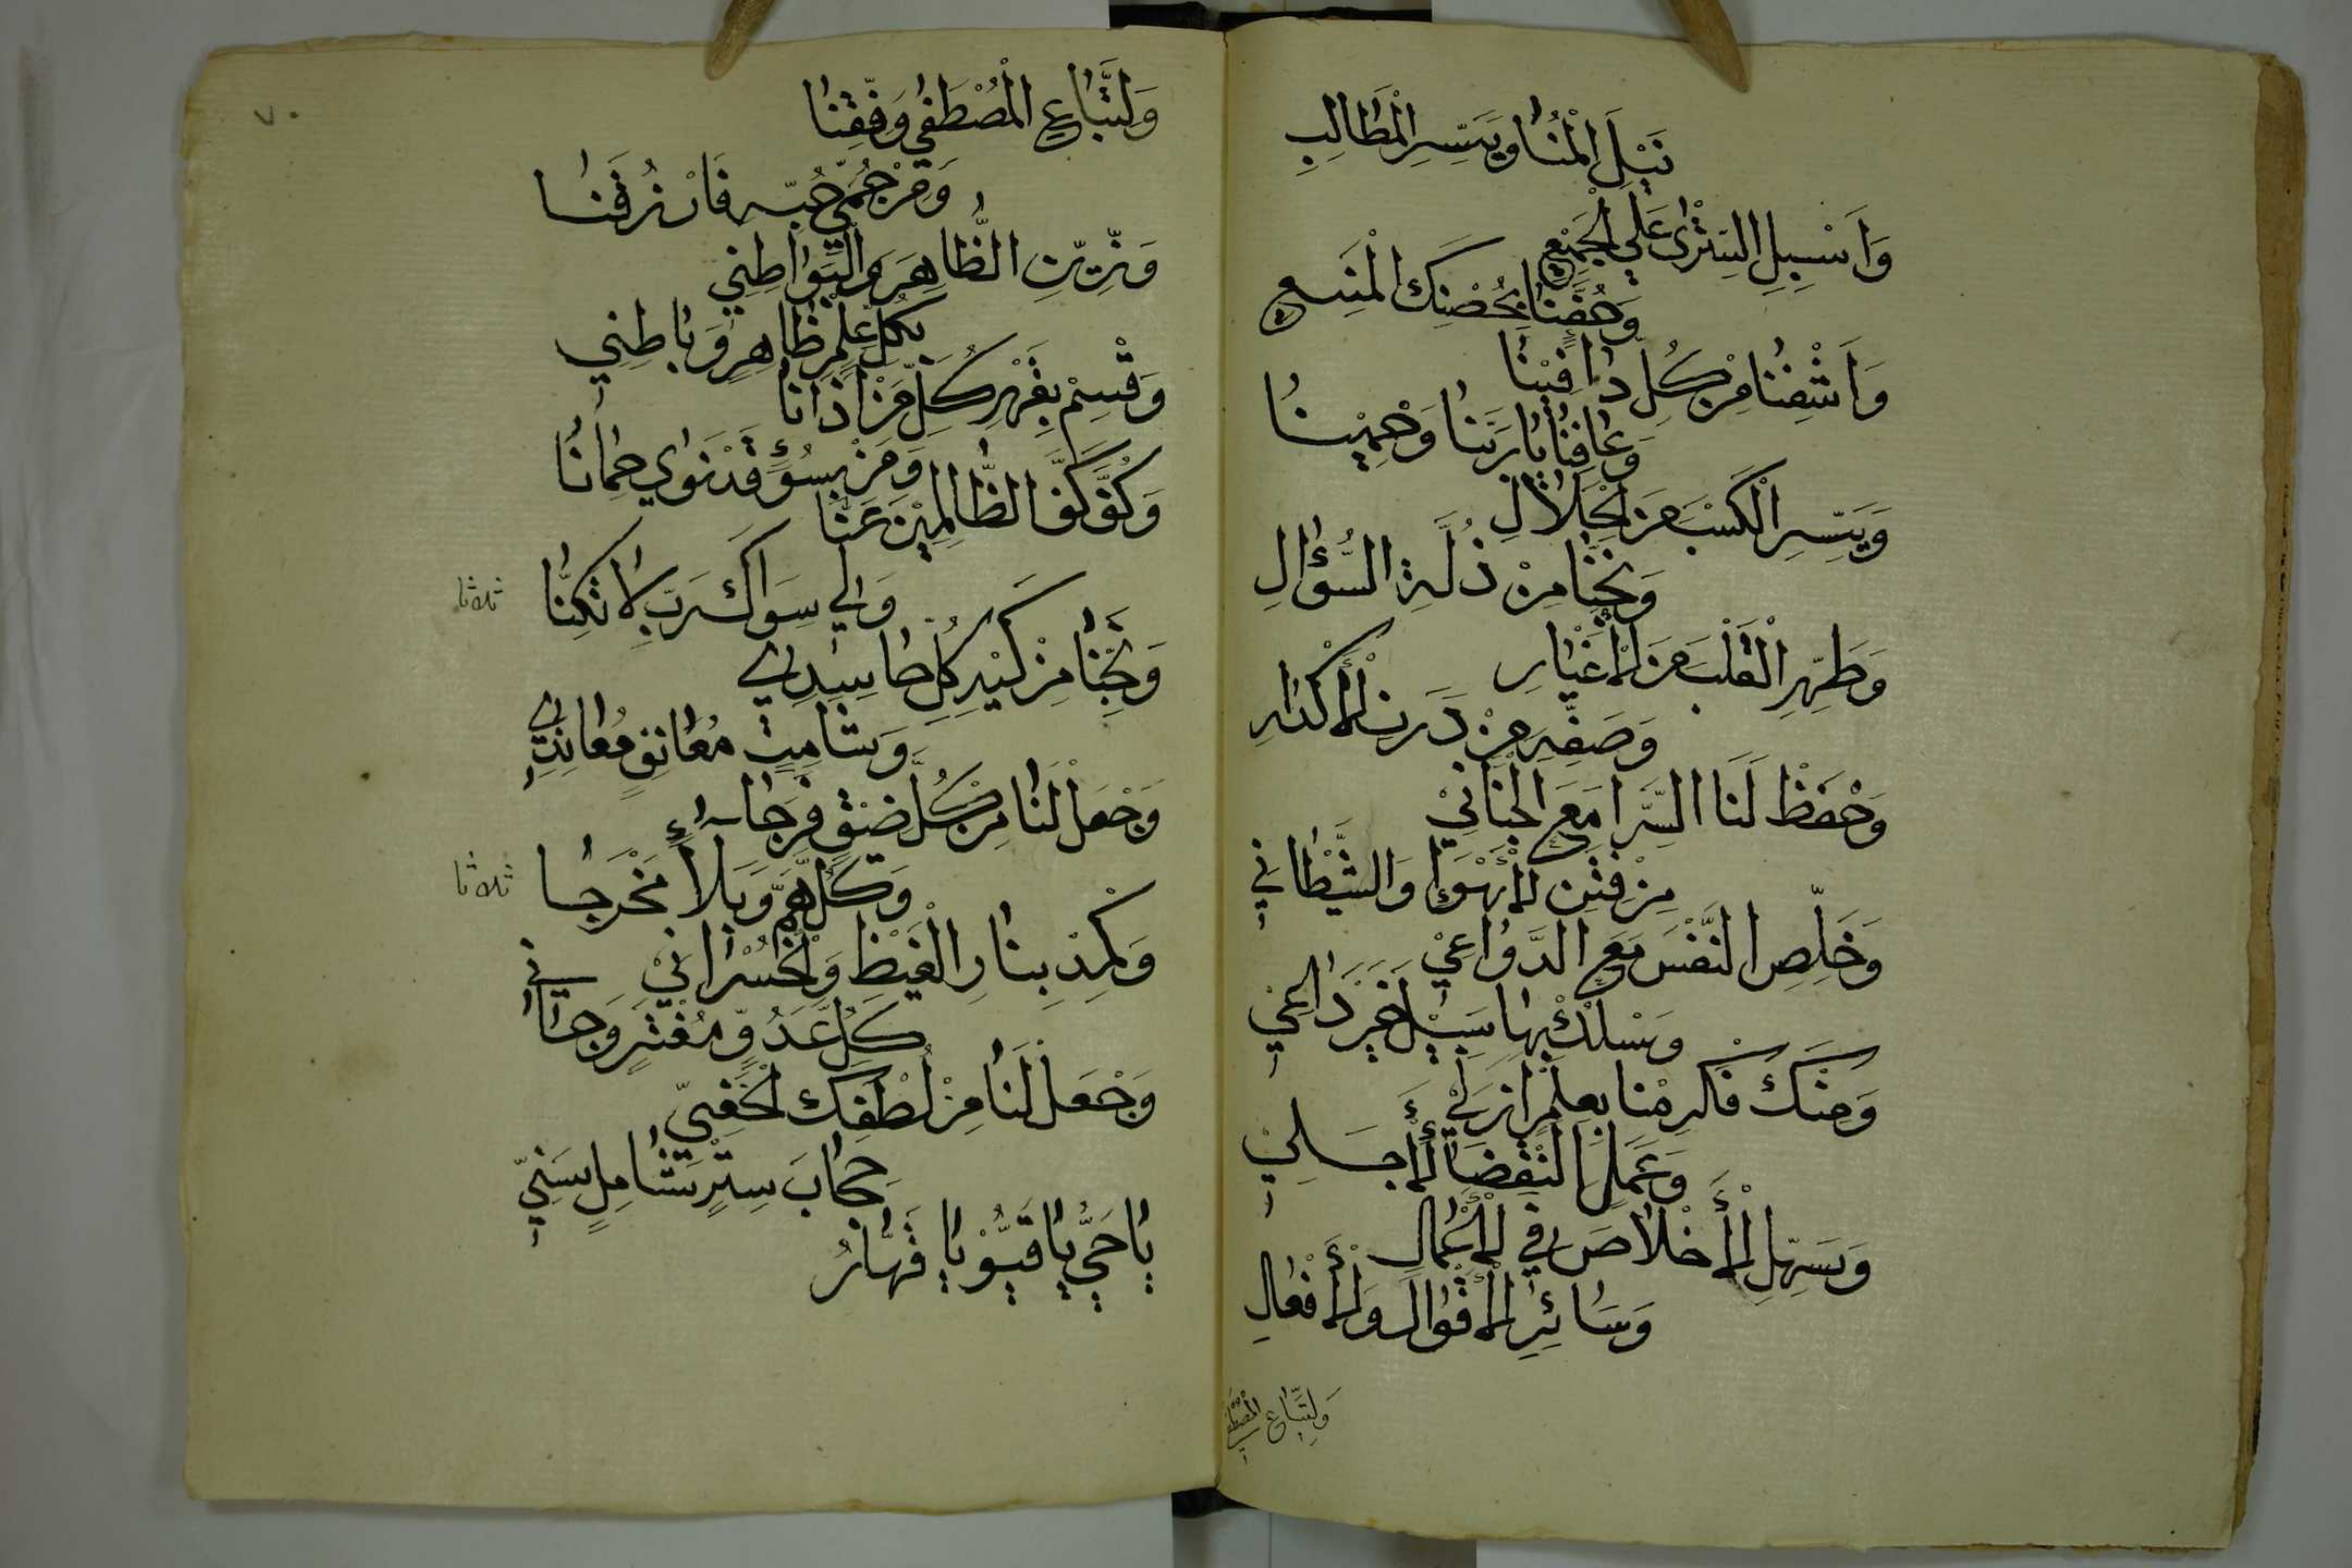 نَيْلَ الْمُنَا وَيَسِّرِ الْمَطَالِبِ
وَاَسْبِيلِ السِتْرَى عَلَى الْجَمِيْعِ
وَحُفَّنَا بِحُصْنِكَ الْمَنِيعِ
وَاَشْفِنَا مِنْ كُلِ دَاءٍ فِيْنَا
وَعَافِنَا يَا رَبَّنَا وَحْمِيْنَا
وَيَسِّرِ الْكَسْبَ مِنَ الْحَلَالِ
وَنَجِّنَا مِنْ ذُلَّةِ السُّؤَالِ
وَطَهِّرِ الْقَلْبَ مِنَ الْأَغْيَارِ
وَصَفِّهِ مِنْ دَرَنِ الْأَكْدَارِ
وَحْفَظْ لَنَا السِّرَّا مَعَ الْجَنَانِيْ
مِنْ فِتَنِ الْأَهْوَا وَالشَّيْطَانِي
وَخَلِّصِ النَّفْسَ مَعَ الدَّوَاعِيْ
وَسْلُكْ بِهَا سَبِيْلَ خَيْرَ دَاعِيْ
وَمِنْكَ فَاكْرِمْنَا بِعِلْمٍ اَزَلِيْ
وَعَمَلَا لَنْقِضَاءِ لْأَجَلِيْ
وَسَهِّلِ الْأَخْلَاصَ فِي الْأَعْمَالِ
وَسَائِرِ الْأَقْوَالِ وَالْأَفْعَالِ
وَلِتَّبَاعِ الْمُصْطَفَى
٧٠
وَلِتَّبَاعِ الْمُصْطَفَى وَفِّقِنَا
وَمِنْ حُمَيِّ حُبِّهِ فَارْزُقَنَا
وَزَيِّنِ الظَّاهِرَ وَالْبَوَاطِنِي
بِكُلِ عِلْمٍ ظَاهِرٍ وَبَاطِنِي
وَقْسِمْ بِقَهْرِ كُلِّ مَنْ اَذَانَا
وَمَنْ بِسُوْءٍ قَدْ نَوَى حِمَانَا
وَكُفَّ كَفَّ الظَّالِمِيْنَ عَنَّا
وَاِلَى سِوَاكَ رَبِّ لَا تَكِلْنَا
ثلاثا
وَنَجِّنَا مِنْ كَيْدِ كُلِ حَاسِدِي
وَشَامِتٍ مُعَانِقٍ مُعَانِدِي
وَجْعَلْ لَنَا مِنْ كُلِّ ضَيْقٍ فَرَجًا
وَكُلِّ هَمٍّ وَبَلَاءٍ مَخْرَجَا
ثلاثا
وَكْمِدْ بِنَارِ الْغَيْظِ وَالْخُسْرَانِيْ
كُلِ عَدُوٍّ مُفْتَرٍ وَجَانِي
وَجْعَلْ لَنَا مِنْ لُطْفِكَ الْخَفِيِّ
حِجَابَ سِتْرٍ شَامِلٍ سَنِيِّ
يَا حَيُّ يَا قَيُّوْ يَا قَهَّارُ